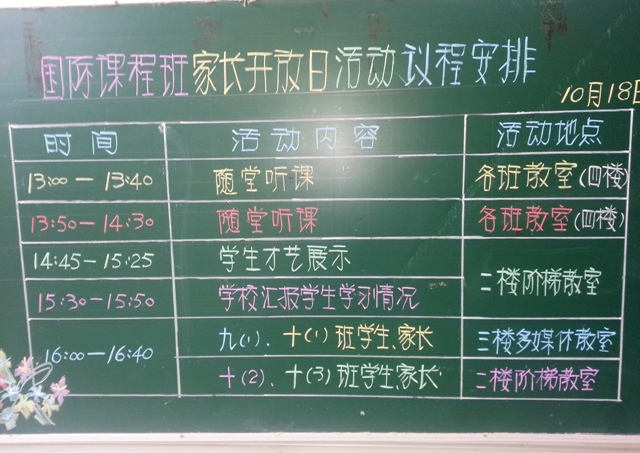 国际课程班家长开放日活动议程安排
10月18日
时间 活动内容 活动地点
13:00—13:40 随堂听课 各班教室(四楼)
13:50—14:30 随堂听课 各班教室(四楼)
14:45—15:25 学生才艺展示 二楼阶梯教室
15:30—15:50 学校汇报学生学习情况
16:00—16:40 九(1)、十(1)班学生、家长 三楼多媒体教室
十(2)、十(3)班学生、家长 二楼阶梯教室